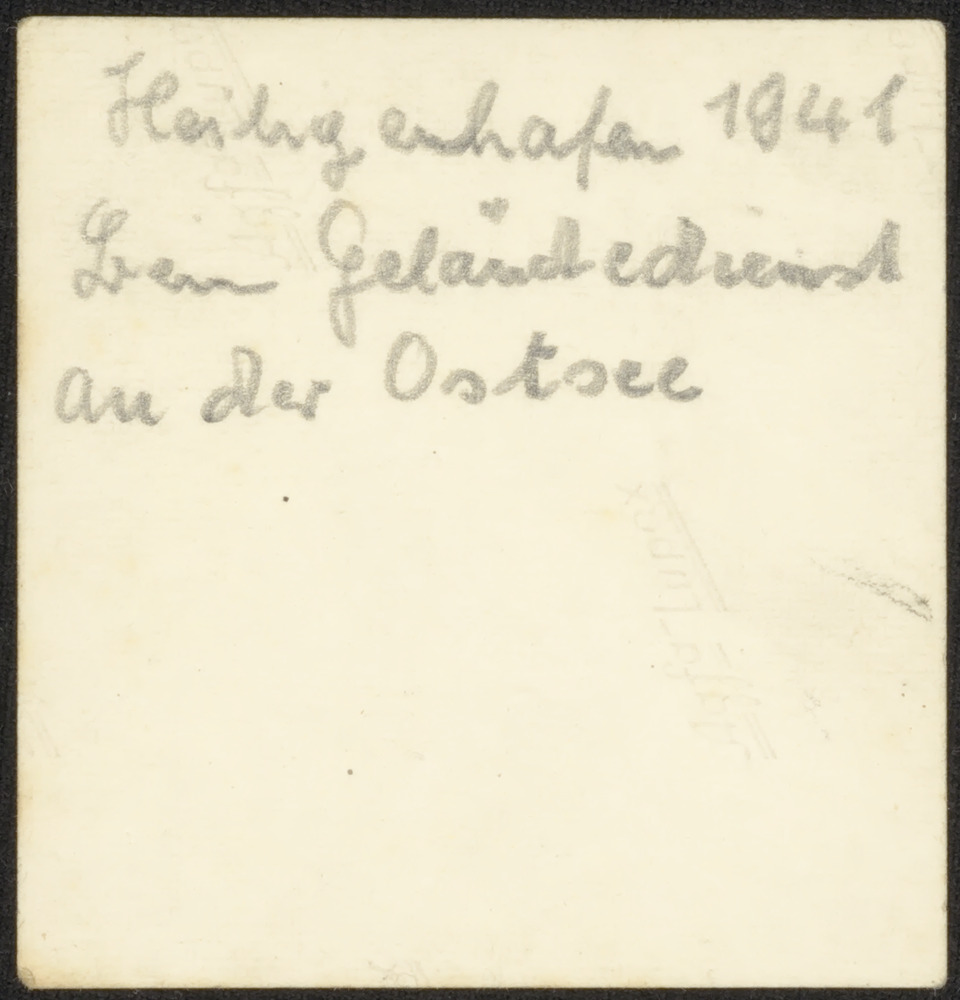 Heiligenhafen 1941
Beim Geländedienst
an der Ostsee